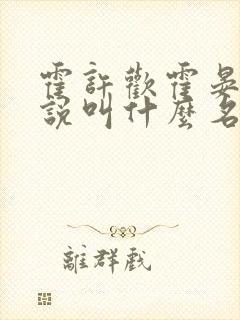 霍許歡霍晏
說叫什麼名
離群戲